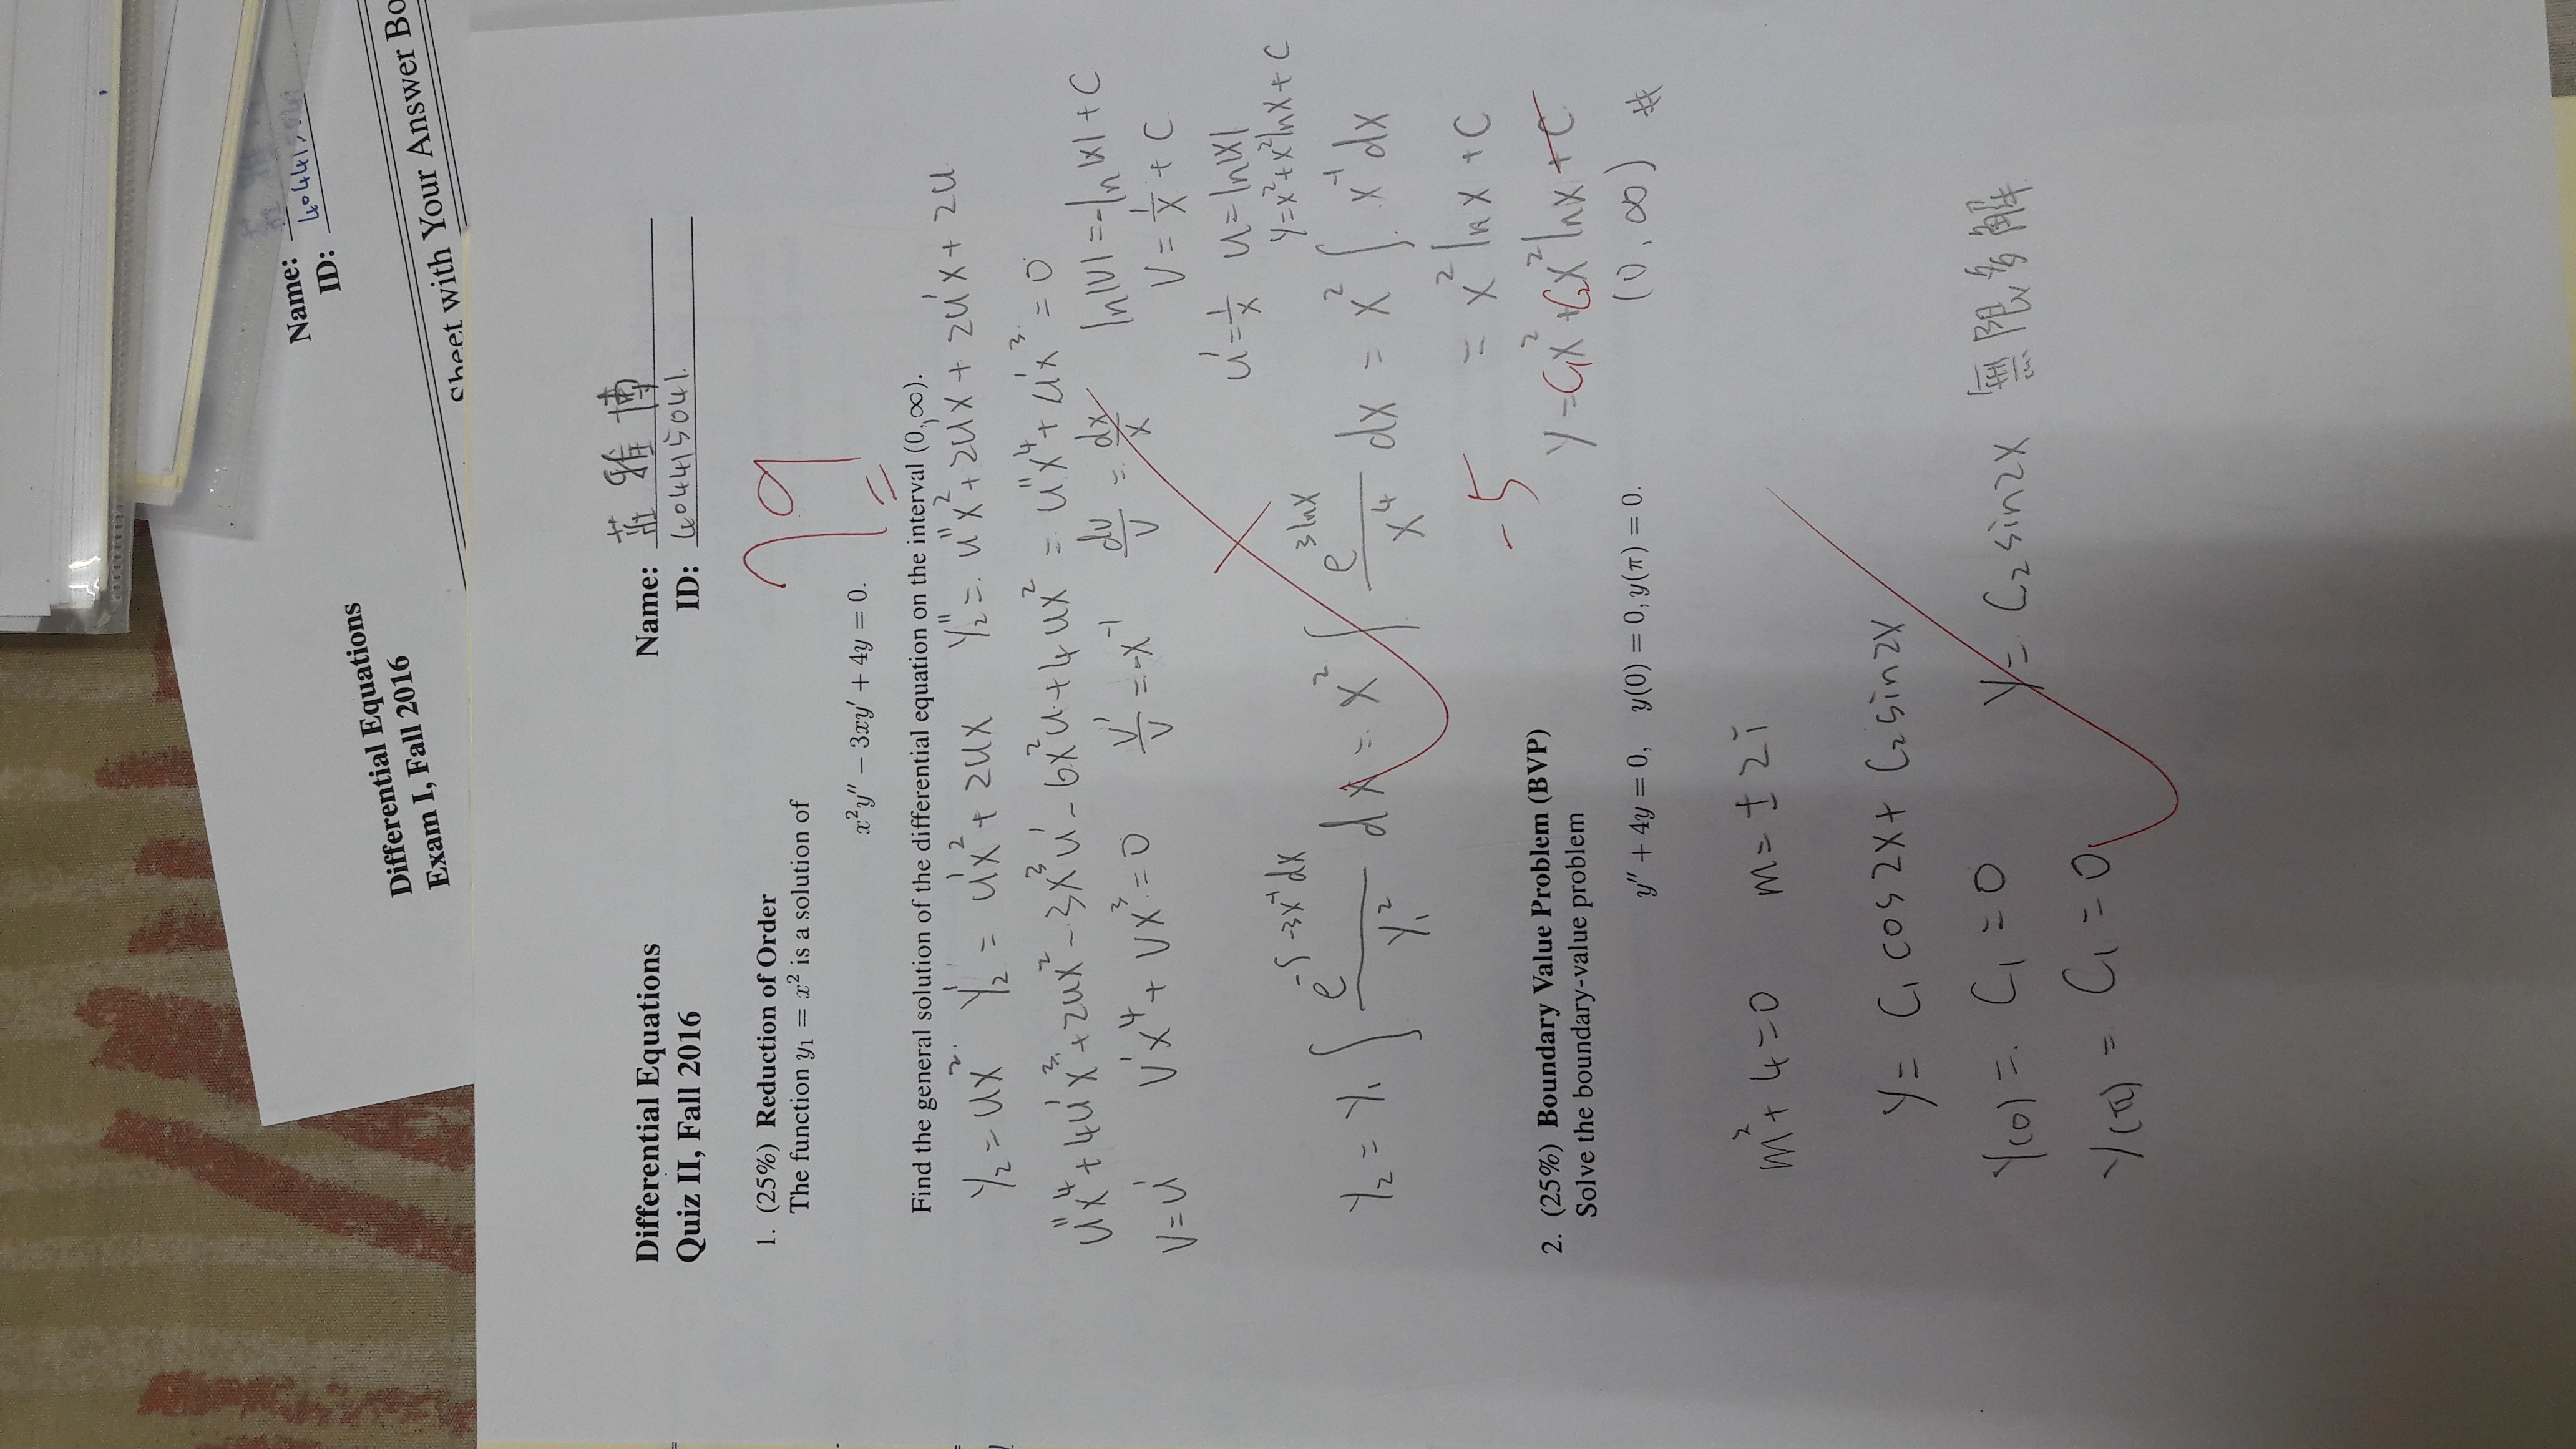 Name:
ID: 404415041
Differential Equations
Exam I, Fall 2016
Sheet with Your Answer Bo
Differential Equations
Quiz II, Fall 2016
Name: 莊雅博
ID: 404415041.
79
1. (25%) Reduction of Order
The function y₁ = x² is a solution of
x²y″ − 3xy′ + 4y = 0.
Find the general solution of the differential equation on the interval (0, ∞).
y₂ = ux² y₂′ = u′x² + 2ux y₂″ = u″x² + 2u′x + 2u′x + 2u
u″x⁴ + 4u′x³ + 2ux² − 3x³u′ − 6x²u + 4ux² = u″x⁴ + u′x³ = 0
v = u′ v′x⁴ + vx³ = 0 v′/v = −x⁻¹ dv/v = dx/x ln|v| = −ln|x| + C
v = 1/x + C
u′ = 1/x u = ln|x|
y = x² + x²lnx + C
y₂ = y₁ ∫ e^(−∫−3x⁻¹dx) / y₁² dx = x² ∫ e^(3lnx) / x⁴ dx = x² ∫ x⁻¹ dx
= x² ln x + C
−5
y = C₁x² + C₂x² lnx + C
(0, ∞) #
2. (25%) Boundary Value Problem (BVP)
Solve the boundary-value problem
y″ + 4y = 0, y(0) = 0, y(π) = 0.
m² + 4 = 0 m = ± 2i
y = C₁ cos2x + C₂ sin2x
y(0) = C₁ = 0 y = C₂ sin2x 無限多解
y(π) = C₁ = 0